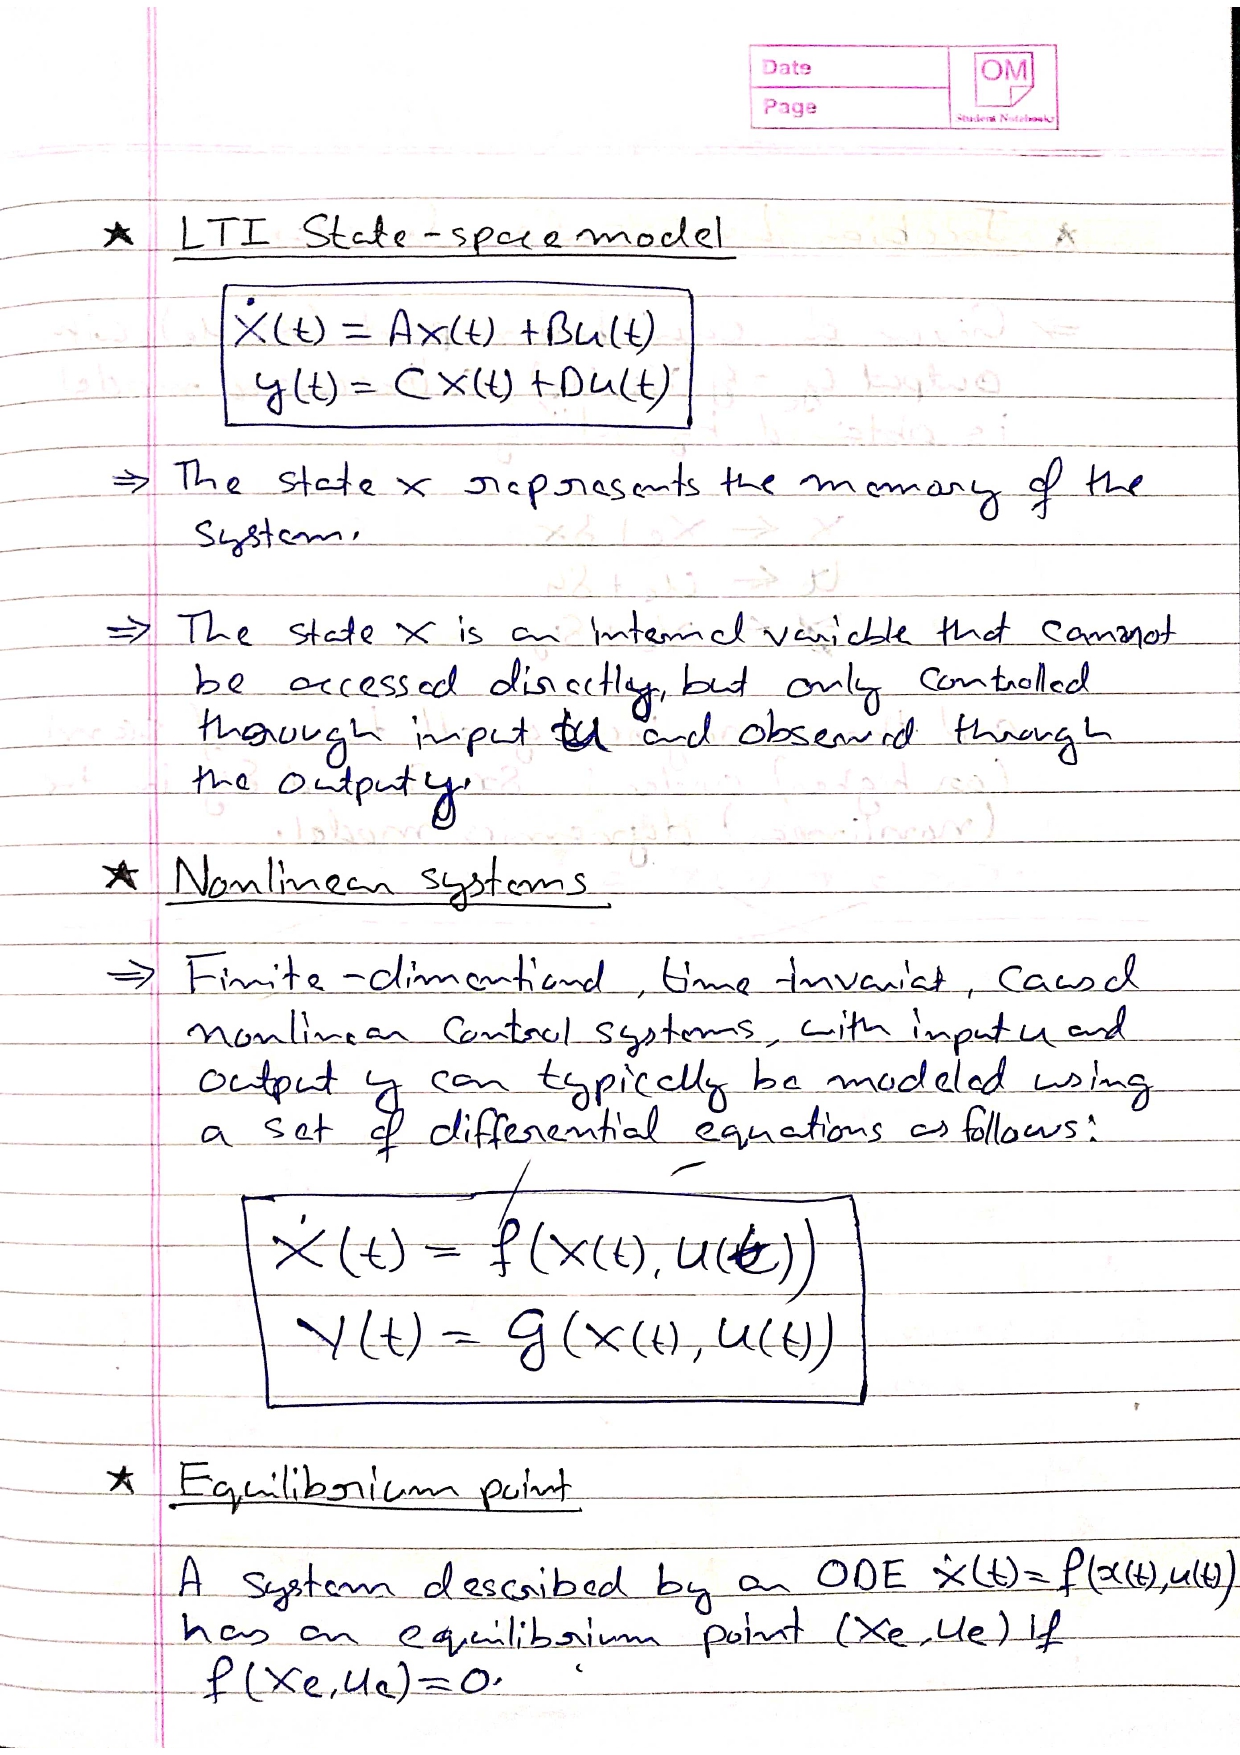 Date
OM
Page
Student Notebooks
★ LTI State-space model
ẋ(t) = Ax(t) + Bu(t)
y(t) = Cx(t) + Du(t)
⇒ The state x represents the memory of the
system.
⇒ The state x is an internal variable that cannot
be accessed directly, but only controlled
through input u and observed through
the output y.
★ Nonlinear systems
⇒ Finite-dimentional, time-invariat, causal
nonlinear control systems, with input u and
output y can typically be modeled using
a set of differential equations as follows:
ẋ(t) = f(x(t), u(t))
y(t) = g(x(t), u(t))
★ Equilibrium point
A system described by an ODE ẋ(t) = f(x(t), u(t))
has an equilibrium point (xe, ue) if
f(xe, ue) = 0.